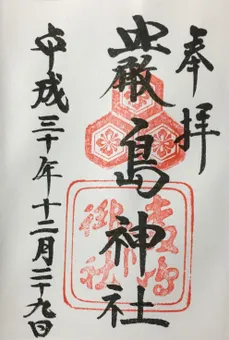 奉拝
嚴島神社
平成三十年十二月二十九日